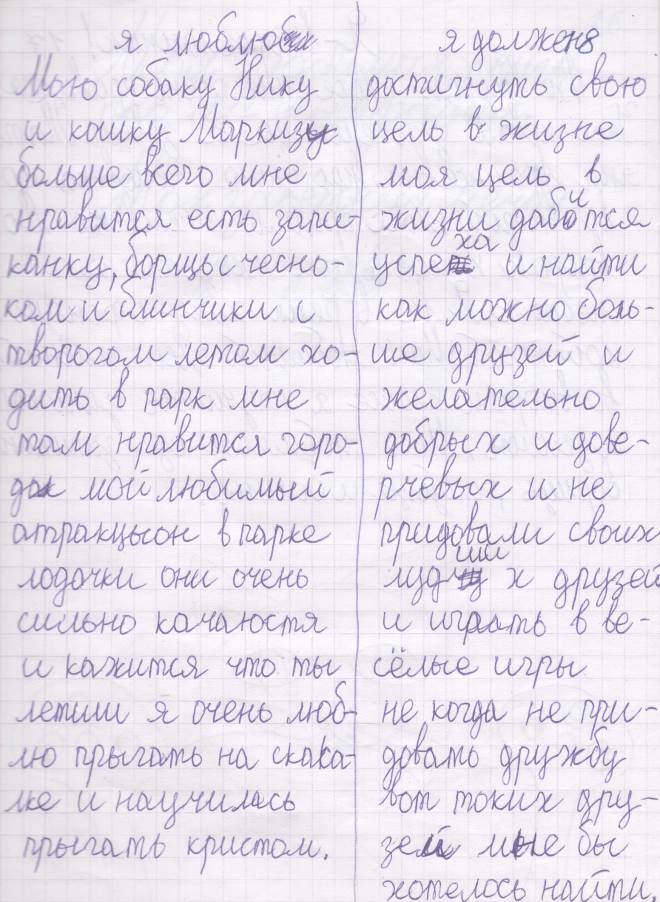 я люблю
Мою собаку Нику
и кошку Маркизу
больше всего мне
нравится есть запи-
канку, борщь с чесно-
ком и блинчики с
творогом летом хо-
дить в парк мне
там нравится горо-
док мой любимый
атракцыон в парке
лодочки они очень
сильно качаюстя
и кажится что ты
летиш я очень люб-
лю прыгать на скака-
лке и научилась
прыгать кристом.
я должен
достичнуть свою
цель в жизне
моя цель в
жизни дабится
успеха и найти
как можно боль-
ше друзей и
желательно
добрых и дове-
рчевых и не
придовали своих
лудших друзей
и играть в ве-
сёлые игры
не когда не при-
довать дружбу
вот токих дру-
зей мне бы
хотелось найти.